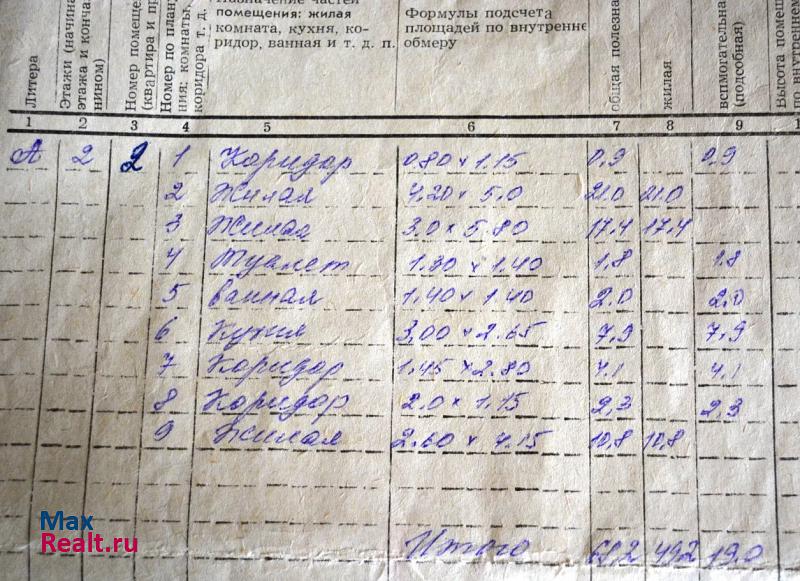 Литера
Этажи (начина
этажа и конча
нином)
Номер помеще
(квартира и пр
Номер по плану
ния: комнаты,
коридора т. д.
помещения: жилая
комната, кухня, ко-
ридор, ванная и т. д. п.
Формулы подсчета
площадей по внутренне
обмеру
общая полезна
жилая
вспомогательна
(подсобная)
Высота помещ
по внутреннем
1 2 3 4 5 6 7 8 9 1
А 2 2 1 Коридор 0.80 × 1.15 0,9 0,9
2 Жилая 4.20 × 5.0 21.0 21.0
3 Жилая 3.0 × 5.80 17,4 17,4
4 Туалет 1.30 × 1.40 1,8 1.8
5 ванная 1.40 × 1.40 2.0 2.0
6 Кухня 3,00 × 2.65 7,9 7,9
7 Коридор 1.45 × 2.80 4,1 4,1
8 Коридор 2.0 × 1.15 2,3 2,3
9 Жилая 2.60 × 4.15 10,8 10,8
Итого 68,2 49,2 19.0
Max
Realt.ru